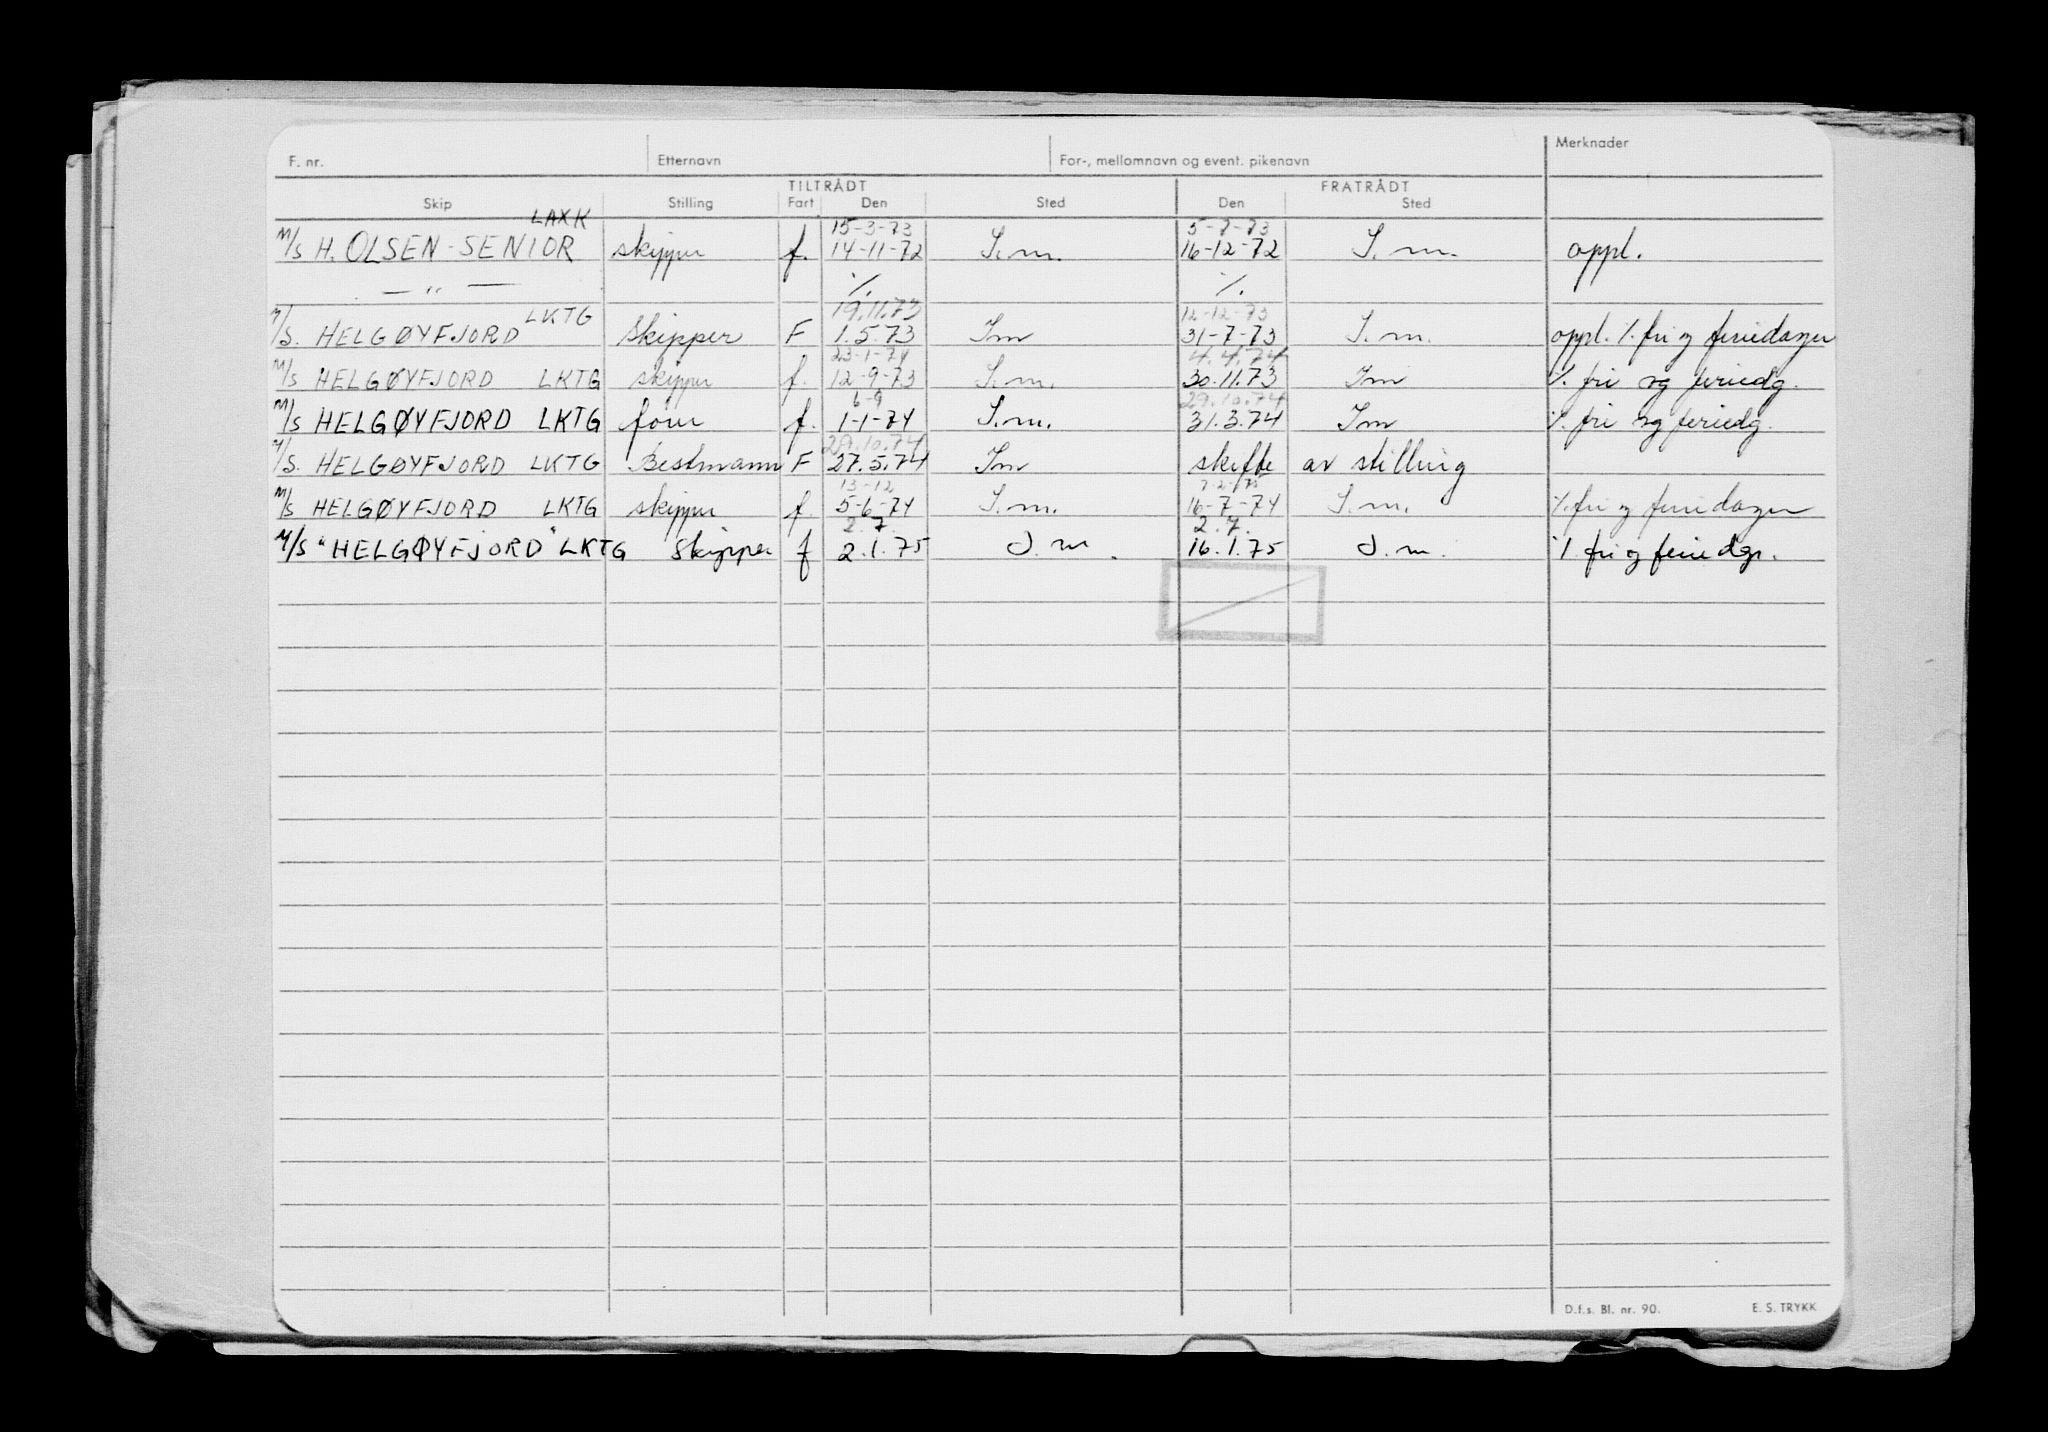 F. nr. Etternavn For-, mellomnavn og event. pikenavn Merknader
TILTRÅDT FRATRÅDT
Skip Stilling Fart Den Sted Den Sted
LAXK 15-3-73 5-7-73
M/S H. OLSEN-SENIOR skipper f. 14-11-72 I.m. 16-12-72 I.m. oppl.
— " — /. /.
LKTG 19.11.73 12-12-73
M/S. HELGØYFJORD Skipper F 1.5.73 Im 31-7-73 I.m. oppl. /. fri og feriedager
23-1-74 4.4.74
M/S HELGØYFJORD LKTG skipper f. 12-9-73 I.m. 30.11.73 Im /. fri og feriedg.
6-9 29.10.74
M/S HELGØYFJORD LKTG f. 1-1-74 I.m. 31.3.74 Im /. fri og feriedg.
29.10.74
M/S. HELGØYFJORD LKTG Bestmann F 27.5.74 Im skifte av stilling
13-12 7-2-75
M/S HELGØYFJORD LKTG skipper f. 5-6-74 I.m. 16-7-74 I.m. /. fri og feriedager
2.7. 2.7.
M/S "HELGØYFJORD" LKTG Skipper f 2.1.75 I.m. 16.1.75 I.m. /. fri og feriedgr.
D.f.s. Bl. nr. 90. E. S. TRYKK